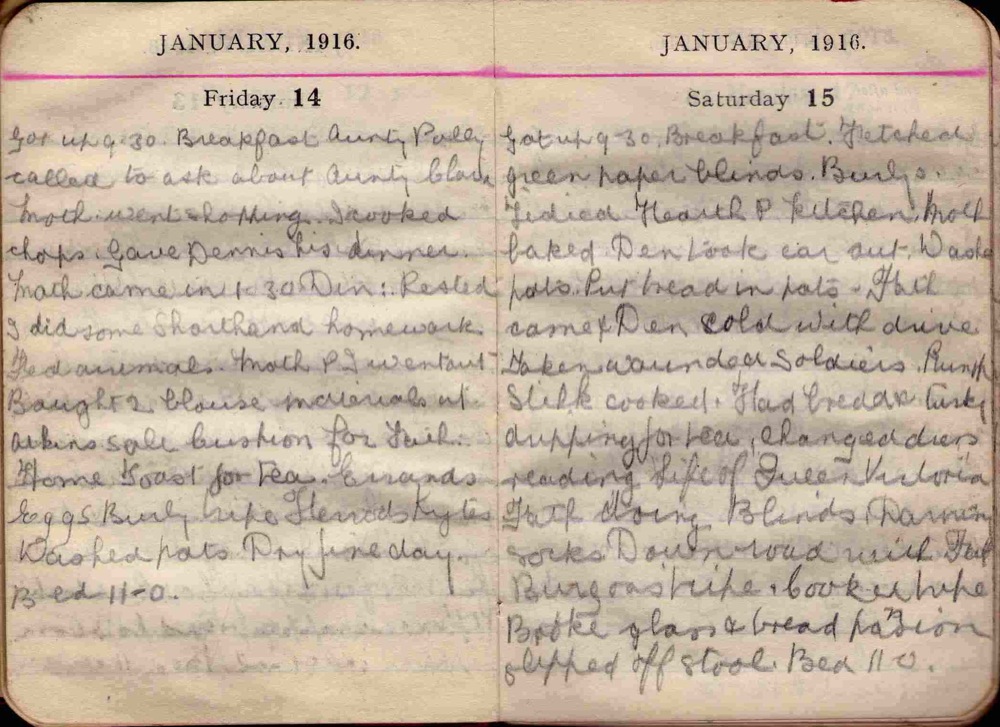 JANUARY, 1916.
Friday 14
Got up 9-30. Breakfast Aunty Polly
called to ask about Aunty Clara
Moth. went shopping. I cooked
chops. Gave Dennis his dinner.
Moth came in 1-30 Din: Rested
I did some Shorthand homework.
Fed animals. Moth & I went out
Bought 2 blouse materials at
Atkins sale cushion for Faith.
Home Toast for tea. Errands
Eggs Burly tripe
Washed pots Dry fine day.
Bed 11-0.
JANUARY, 1916.
Saturday 15
Got up 9-30. Breakfast. Fetched
green paper blinds. Burlys.
Tidied Hearth & Kitchen. Moth
baked Den took car out. Washed
pots. Put bread in pots. Fath
came & Den cold with drive
Taken wounded Soldiers. Rump
cooked. Had bread &
dripping for tea, changed
reading Life of Queen Victoria
Fath doing Blinds. Darning
socks Down road with Fath
tripe. cooked tripe
Broke glass & bread
slipped off stool. Bed 11-0.